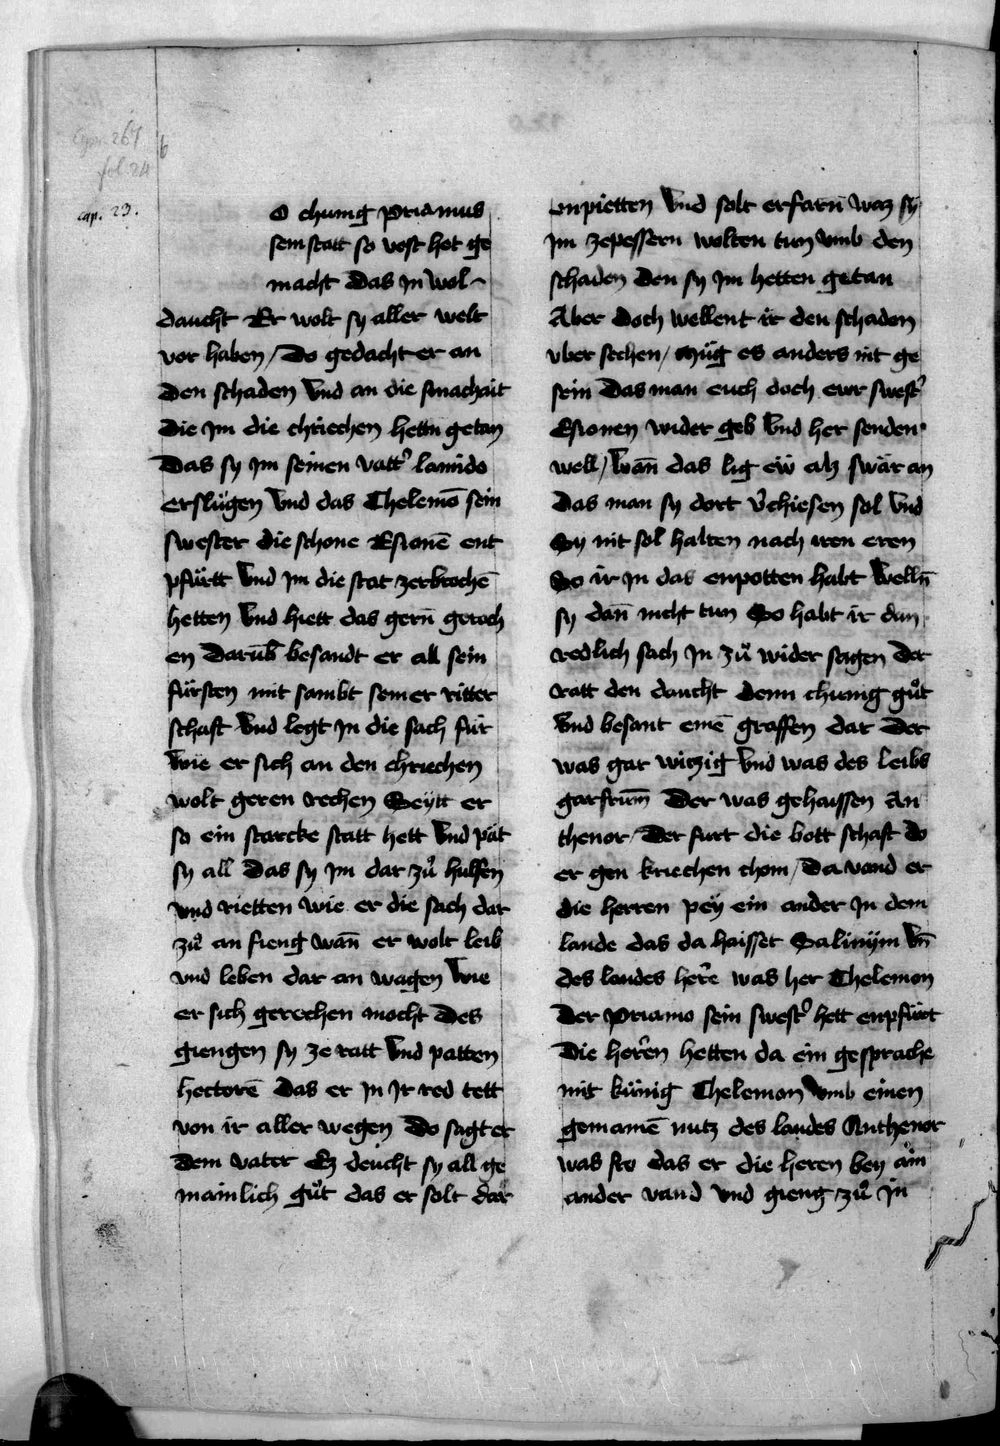 Cgm. 267
fol. 24
6
cap. 23.
O chunig priamus
sein statt so vost het ge
macht Das in wol
daucht Er wolt sy aller welt
vor haben / Do gedacht er an
den schaden Vnd an die smachait
die jm die chriechen hettn getan
Das sy jm seinen vatt' lamido
erslůgen Vnd das Thelemō sein
swester die schone Esionē ent
pfůrtt Vnd jm die stat zerbrochē
hetten Vnd hiett das gern̄ geroch
en Darūb besandt er all sein
fůrsten mit sambt seiner ritter
schaft Vnd legt jn die sach für
Wie er sich an den chriechen
wolt geren rechen Seytt er
so ein starcke statt hett Vnd pät
sy all Das sy jm dar zů hulfen
vnd rietten wie er die sach dar
zů an fieng wān er wolt leib
vnd leben dar an wagen Wie
er sich gerechen mocht Des
giengen sy ze ratt Vnd patten
hectorē Das er jn jr red tett
von ir aller wegen Do sagt er
dem vater Ez deucht sy all ge
mainlich gůt das er solt dar
enpietten Vnd solt erfarn̄ waz sy
jm zepessern wolten tun vmb den
schaden Den sy jm hetten getan
Aber doch wellent ir den schaden
vber sechen / můg es anders nit ge
sein Das man euch doch ewr swest'
Esionen wider geb Vnd her senden
well / Wān das lig ew alz swär an
Das man sy dort v'chiesen sol Vnd
Sy nit sol halten nach iren eren
So ir jn das enpotten habt Welln̄
sy dan̄ nicht tun So habt ir dan
redlich sach jn zů wider sagen Der
ratt den daucht denn chunig gůt
Vnd besant einē graffen dar Der
was gar witzig Vnd was des leibs
gar frum̄ Der was gehaissen An
thenor / Der furt die bott schaft Do
er gen kriechen chom / Da vand er
die herren pey ein ander jn dem
lande das da haisset Salinijm Vn̄
des landes herre was her Thelemon
Der priamo sein swest' hett enpfůrt
Die heren hetten da ein gesprache
mit kůnig Thelemon Vmb einen
gemainē nutz des landes Anthenor
was fro das er die heren bey ain
ander vand vnd gieng zů jn